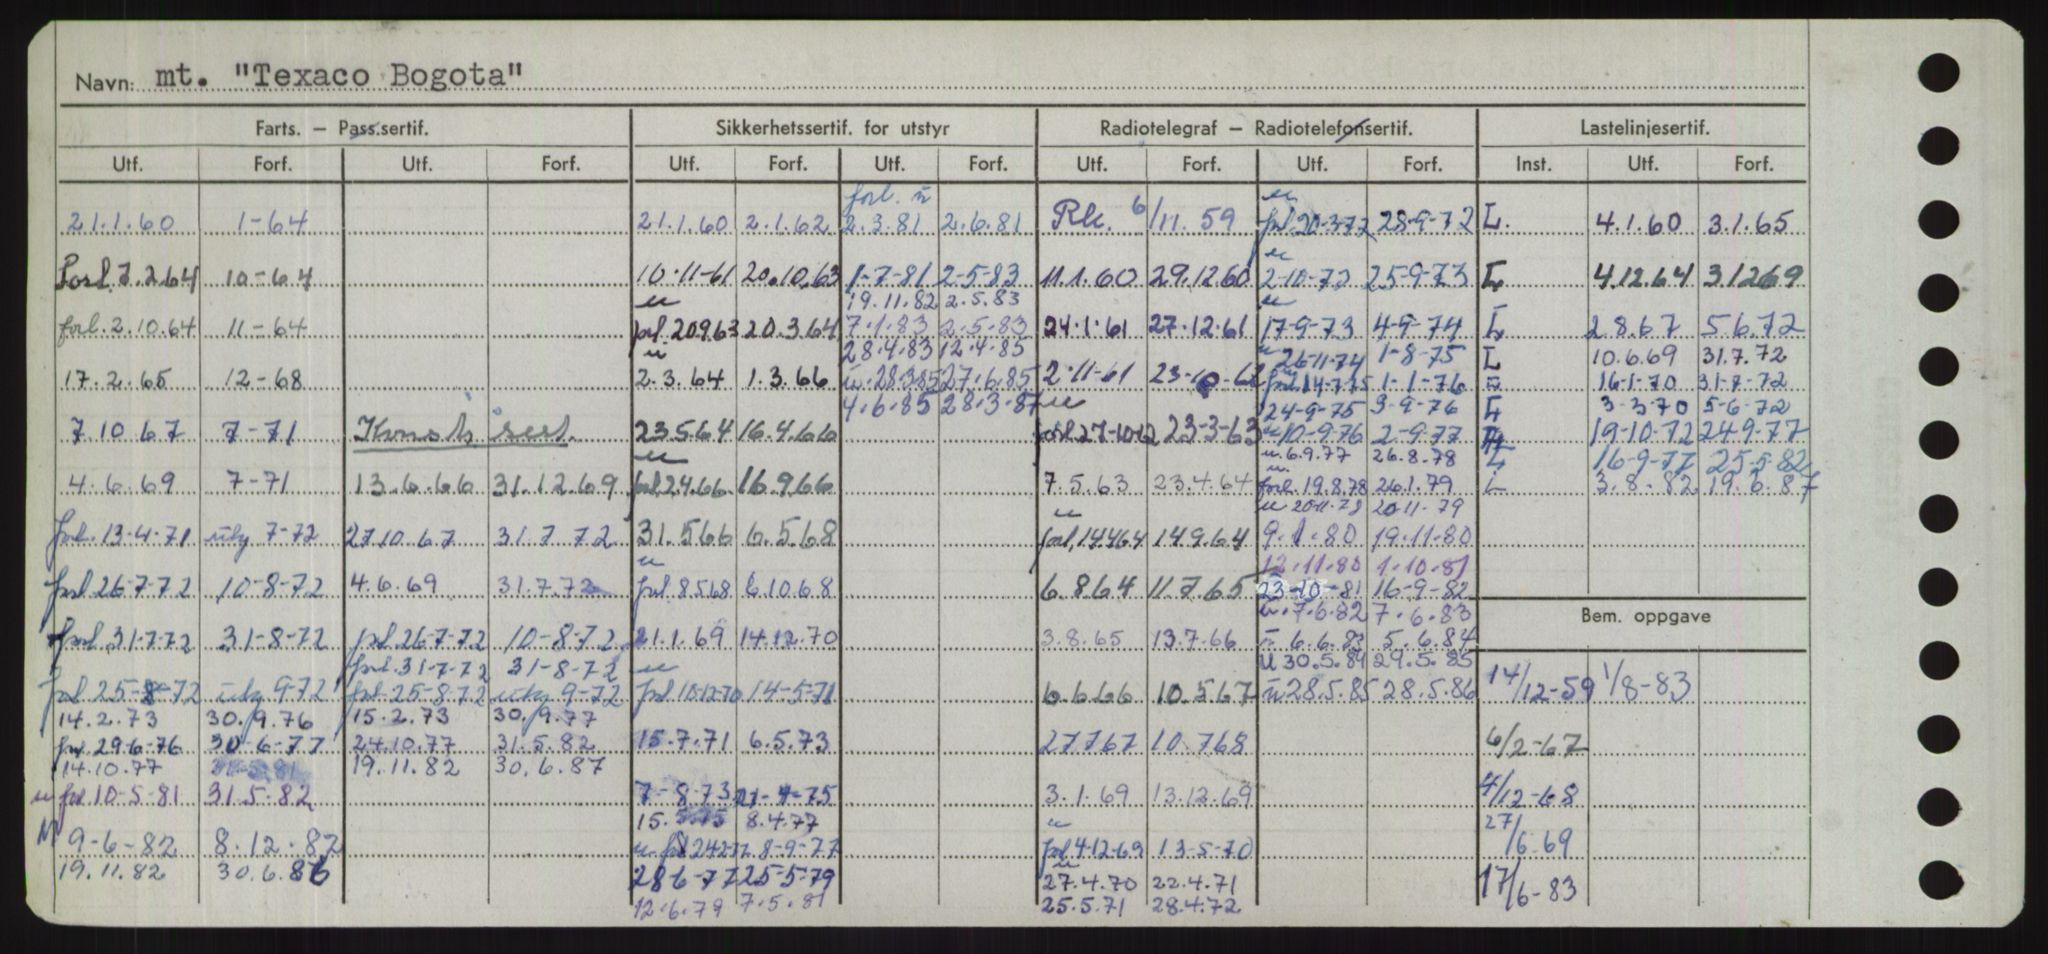 Navn: mt. "Texaco Bogota"
Farts. – Pass.sertif. Sikkerhetssertif. for utstyr Radiotelegraf – Radiotelefonsertif. Lastelinjesertif.
Utf. Forf. Utf. Forf. Utf. Forf. Utf. Forf. Utf. Forf. Utf. Forf. Inst. Utf. Forf.
21.1.60 1-64 21.1.60 2.1.62 forl. u 2.3.81 2.6.81 Rk. 6/11.59 u forl. 20-3-72 28-9-72 L. 4.1.60 3.1.65
Forl. 7.2.64 10-64 10-11-61 20.10.63 1-7-81 2-5-83 11.1.60 29.12.60 u 2-10-72 25-9-73 L 4.12.64 3.12.69
u 19.11.82 2.5.83 u
forl. 2.10.64 11-64 forl 20963 20.3.64 7.1.83 2.5.83 24.1.61 27.12.61 17-9-73 4-9-74 L 2.8.67 5.6.72
u 28.4.83 12.4.85 u 26-11-74 1-8-75 L 10.6.69 31.7.72
17.2.65 12-68 2.3.64 1.3.66 u. 28.3.85 27.6.85 2-11-61 23-10-62 forl. 14-7-75 1-1-76 16-1-70 31-7-72
4.6.85 28.3.87 u 24-9-75 3-9-76 L 3-3-70 5-6-72
7.10.67 7-71 Konstr. sert. 23.5.64 16.4.66 forl. 27-10-62 23-3-63 u 10-9-76 2-9-77 19-10-72 24-9-77
u u. 6.9.77 26.8.78 L 16-9-77 25-5-82
4.6.69 7-71 13.6.66 31.12.69 forl. 2.4.66 16.9.66 7.5.63 23.4.64 u. forl. 19.8.78 26.1.79 L 3.8.82 19.6.87
u u 20-11-78 20-11-79
forl. 13-4-71 7-72 27.10.67 31.7.72 31.5.66 6.5.68 forl. 14.4.64 14.9.64 9.1.80 19.11.80
u 12.11.80 1.10.81
forl 26-7-72 10-8-72 4.6.69 31.7.72 forl 8.5.68 6.10.68 6.8.64 11.7.65 23-10-81 16-9-82
u. 7.6.82 7.6.83 Bem. oppgave
forl. 31-7-72 31-8-72 forl 26-7-72 10-8-72 21.1.69 14.12.70 3.8.65 13.7.66 u 6.6.83 5.6.84
forl. 31-7-72 31-8-72 u u 30.5.84 29.5.85
forl 25-8-72 9-72 forl. 25-8-72 9-72 forl 10-12-70 14-5-71 6.6.66 10.5.67 u 28.5.85 28.5.86 14/12-59 1/8-83
14.2.73 30.9.76 15.2.73 30.9.77
29-6-76 30-6-77 24.10.77 31.5.82 15.7.71 6.5.73 27.7.67 10.7.68 6/2-67
14.10.77 19.11.82 30.6.87
u forl. 10-5-81 31.5.82 7-8-73 21-4-75 3.1.69 13.12.69 4/12-68
8.4.77 u
M 9-6-82 8.12.82 u. forl 8-9-77 forl 4-12-69 13-5-70 27/6.69
19.11.82 30.6.86 28-6-77 25-5-79 u 27.4.70 22.4.71 17/6-83
12.6.79 7.5.81 25.5.71 28.4.72